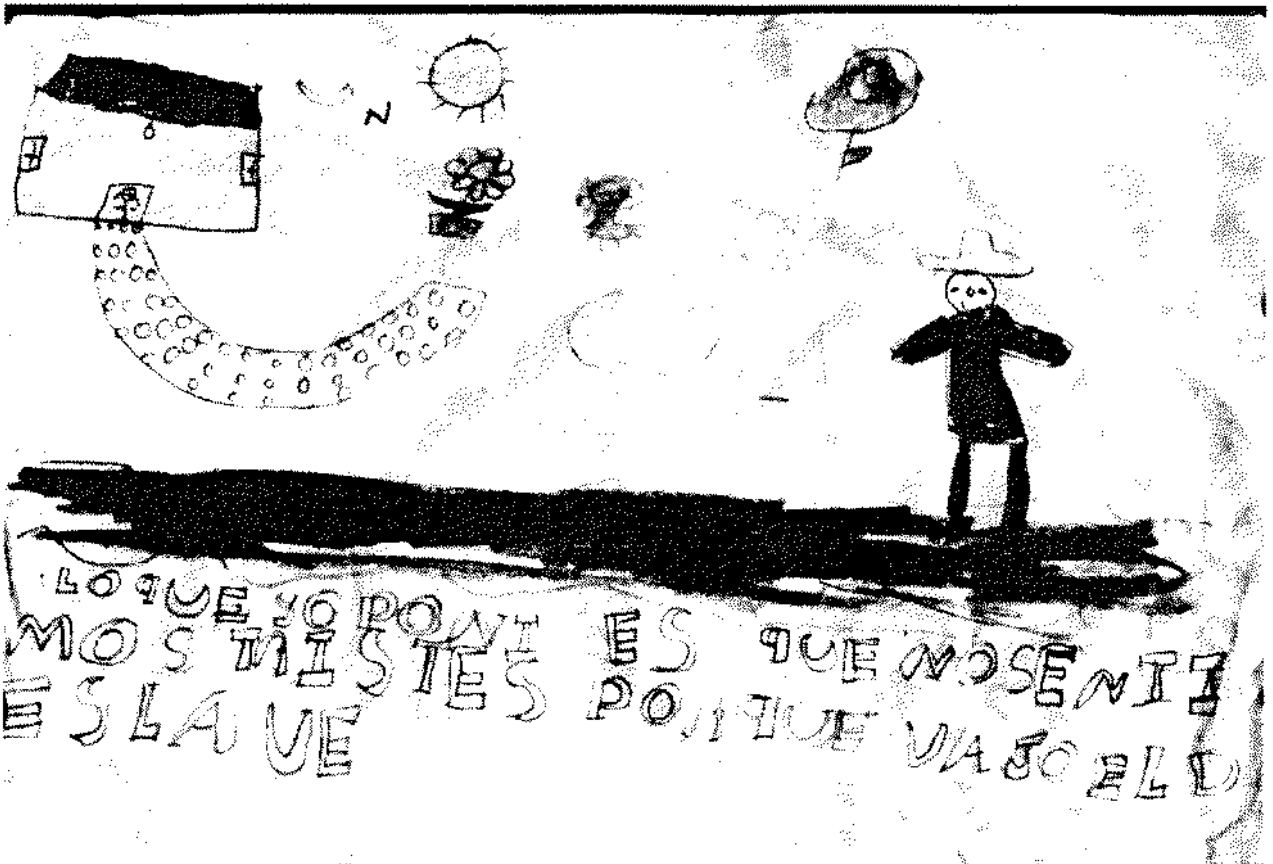 LO QUE YO PONI ES QUE NOSENTI
MOS TRISTES PORQUE VIAJO EL D
ES LA UE